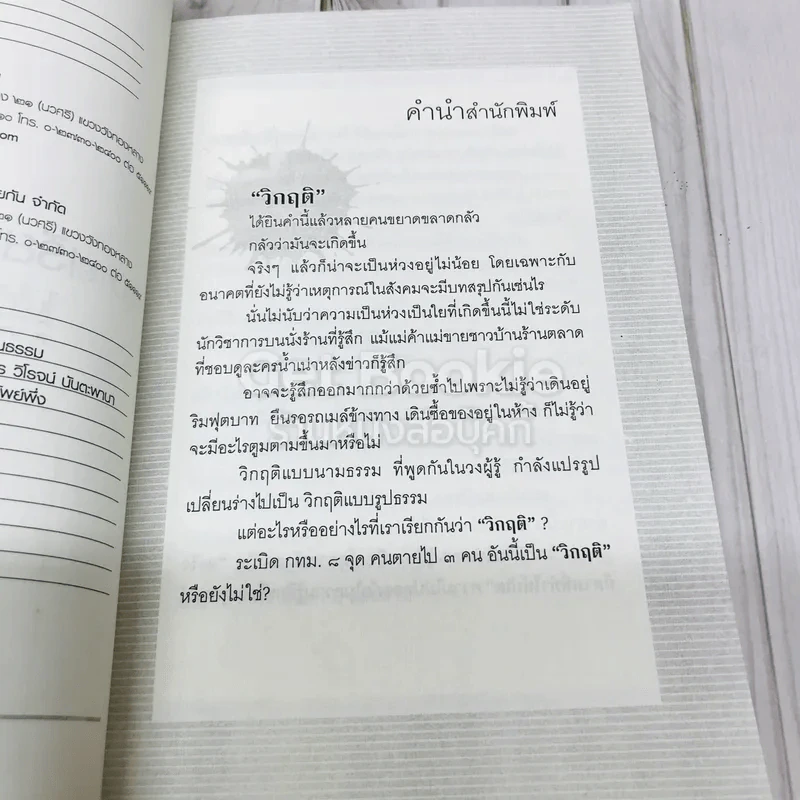 ง ๒๑ (นวศรี) แขวงวังทองหลาง
๑๐ โทร. ๐-๒๗๓๐-๒๔๐๐ ต่อ
om
ยกัน จำกัด
๒๑ (นวศรี) แขวงวังทองหลาง
โทร. ๐-๒๗๓๐-๒๔๐๐ ต่อ
นธรรม
ร วิโรจน์ นันตะพานา
ทิพย์พึ่ง
คำนำสำนักพิมพ์
“วิกฤติ”
ได้ยินคำนี้แล้วหลายคนขยาดขลาดกลัว
กลัวว่ามันจะเกิดขึ้น
จริงๆ แล้วก็น่าจะเป็นห่วงอยู่ไม่น้อย โดยเฉพาะกับ
อนาคตที่ยังไม่รู้ว่าเหตุการณ์ในสังคมจะมีบทสรุปกันเช่นไร
นั่นไม่นับว่าความเป็นห่วงเป็นใยที่เกิดขึ้นนี้ไม่ใช่ระดับ
นักวิชาการบนนั่งร้านที่รู้สึก แม้แม่ค้าแม่ขายชาวบ้านร้านตลาด
ที่ชอบดูละครน้ำเน่าหลังข่าวก็รู้สึก
อาจจะรู้สึกออกมากกว่าด้วยซ้ำไปเพราะไม่รู้ว่าเดินอยู่
ริมฟุตบาท ยืนรอรถเมล์ข้างทาง เดินซื้อของอยู่ในห้าง ก็ไม่รู้ว่า
จะมีอะไรตูมตามขึ้นมาหรือไม่
วิกฤติแบบนามธรรม ที่พูดกันในวงผู้รู้ กำลังแปรรูป
เปลี่ยนร่างไปเป็น วิกฤติแบบรูปธรรม
แต่อะไรหรืออย่างไรที่เราเรียกกันว่า “วิกฤติ” ?
ระเบิด กทม. ๘ จุด คนตายไป ๓ คน อันนี้เป็น “วิกฤติ”
หรือยังไม่ใช่?